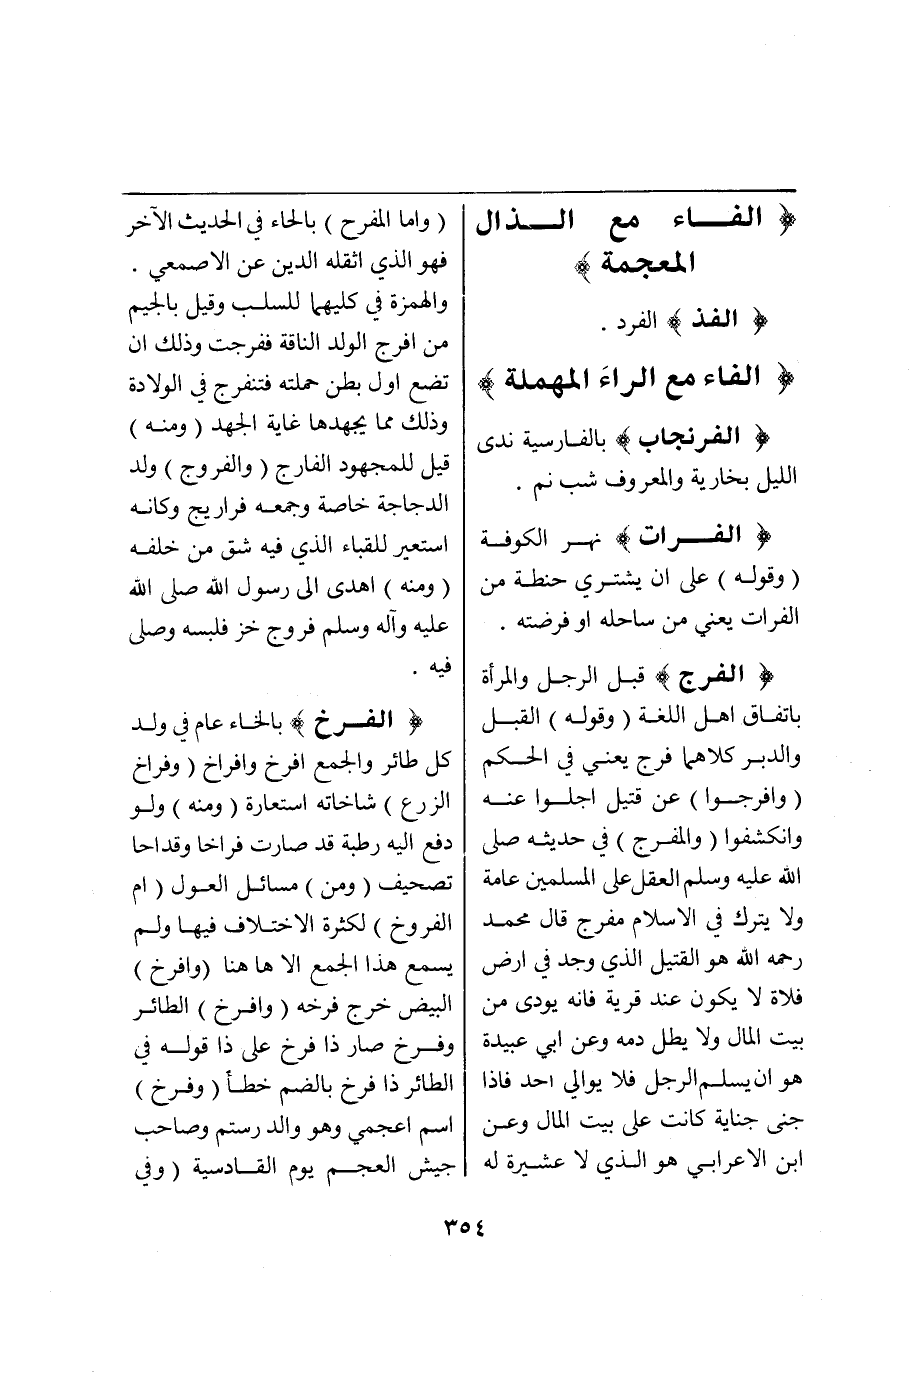 ﴿ الفـــاء مع الـــذال
المعجمة ﴾
﴿ الفذ ﴾ الفرد .
﴿ الفاء مع الراء المهملة ﴾
﴿ الفرنجاب ﴾ بالفـارسية ندى
الليل بخارية والمعروف شب نم .
﴿ الفــرات ﴾ نهـر الكوفـة
( وقولـه ) على ان يشتـري حنطـة من
الفرات يعني من ساحله او فرضته .
﴿ الفرج ﴾ قبل الرجـل والمرأة
باتفـاق اهـل اللغـة ( وقولـه ) القبـل
والدبـر كلاهما فرج يعنـي في الحـكم
( وافرجـوا ) عن قتيل اجلـوا عنـه
وانكشفوا ( والمفـرج ) في حديثـه صلى
الله عليه وسلم العقل على المسلمين عامة
ولا يترك في الاسلام مفرج قال محمـد
رحمه الله هو القتيل الذي وجد في ارض
فلاة لا يكون عند قرية فانه يودى من
بيت المال ولا يطل دمه وعن ابي عبيدة
هو ان يسلـم الرجل فلا يوالي احد فاذا
جنى جناية كانت على بيت المال وعـن
ابن الاعرابـي هو الـذي لا عشـيرة له
( واما المفرح ) بالحاء في الحديث الآخر
فهو الذي اثقله الدين عن الاصمعي .
والهمزة في كليهما للسلـب وقيل بالجيم
من افرج الولد الناقة ففرجت وذلك ان
تضع اول بطن حملته فتنفرج في الولادة
وذلك مما يجهدها غاية الجهد ( ومنـه )
قيل للمجهود الفارج ( والفروج ) ولد
الدجاجة خاصة وجمعـه فراريج وكانـه
استعير للقباء الذي فيه شق من خلفـه
( ومنه ) اهدى الى رسول الله صلى الله
عليه وآله وسلم فروج خز فلبسه وصلى
فيه .
﴿ الفـرخ ﴾ بالخـاء عام في ولـد
كل طائر والجمع افرخ وافراخ ( وفراخ
الزرع ) شاخاته استعارة ( ومنه ) ولـو
دفع اليه رطبة قد صارت فراخا وقداحا
تصحيف ( ومن ) مسائـل العـول ( ام
الفروخ ) لكثرة الاختـلاف فيهـا ولـم
يسمـع هذا الجمع الا ها هنا ( وافرخ )
البيض خرج فرخه ( وافـرخ ) الطائـر
وفـرخ صار ذا فرخ على ذا قولـه في
الطائر ذا فرخ بالضم خطـأ ( وفـرخ )
اسم اعجمي وهو والد رستم وصاحب
جيش العجـم يوم القـادسية ( وفي
٣٥٤